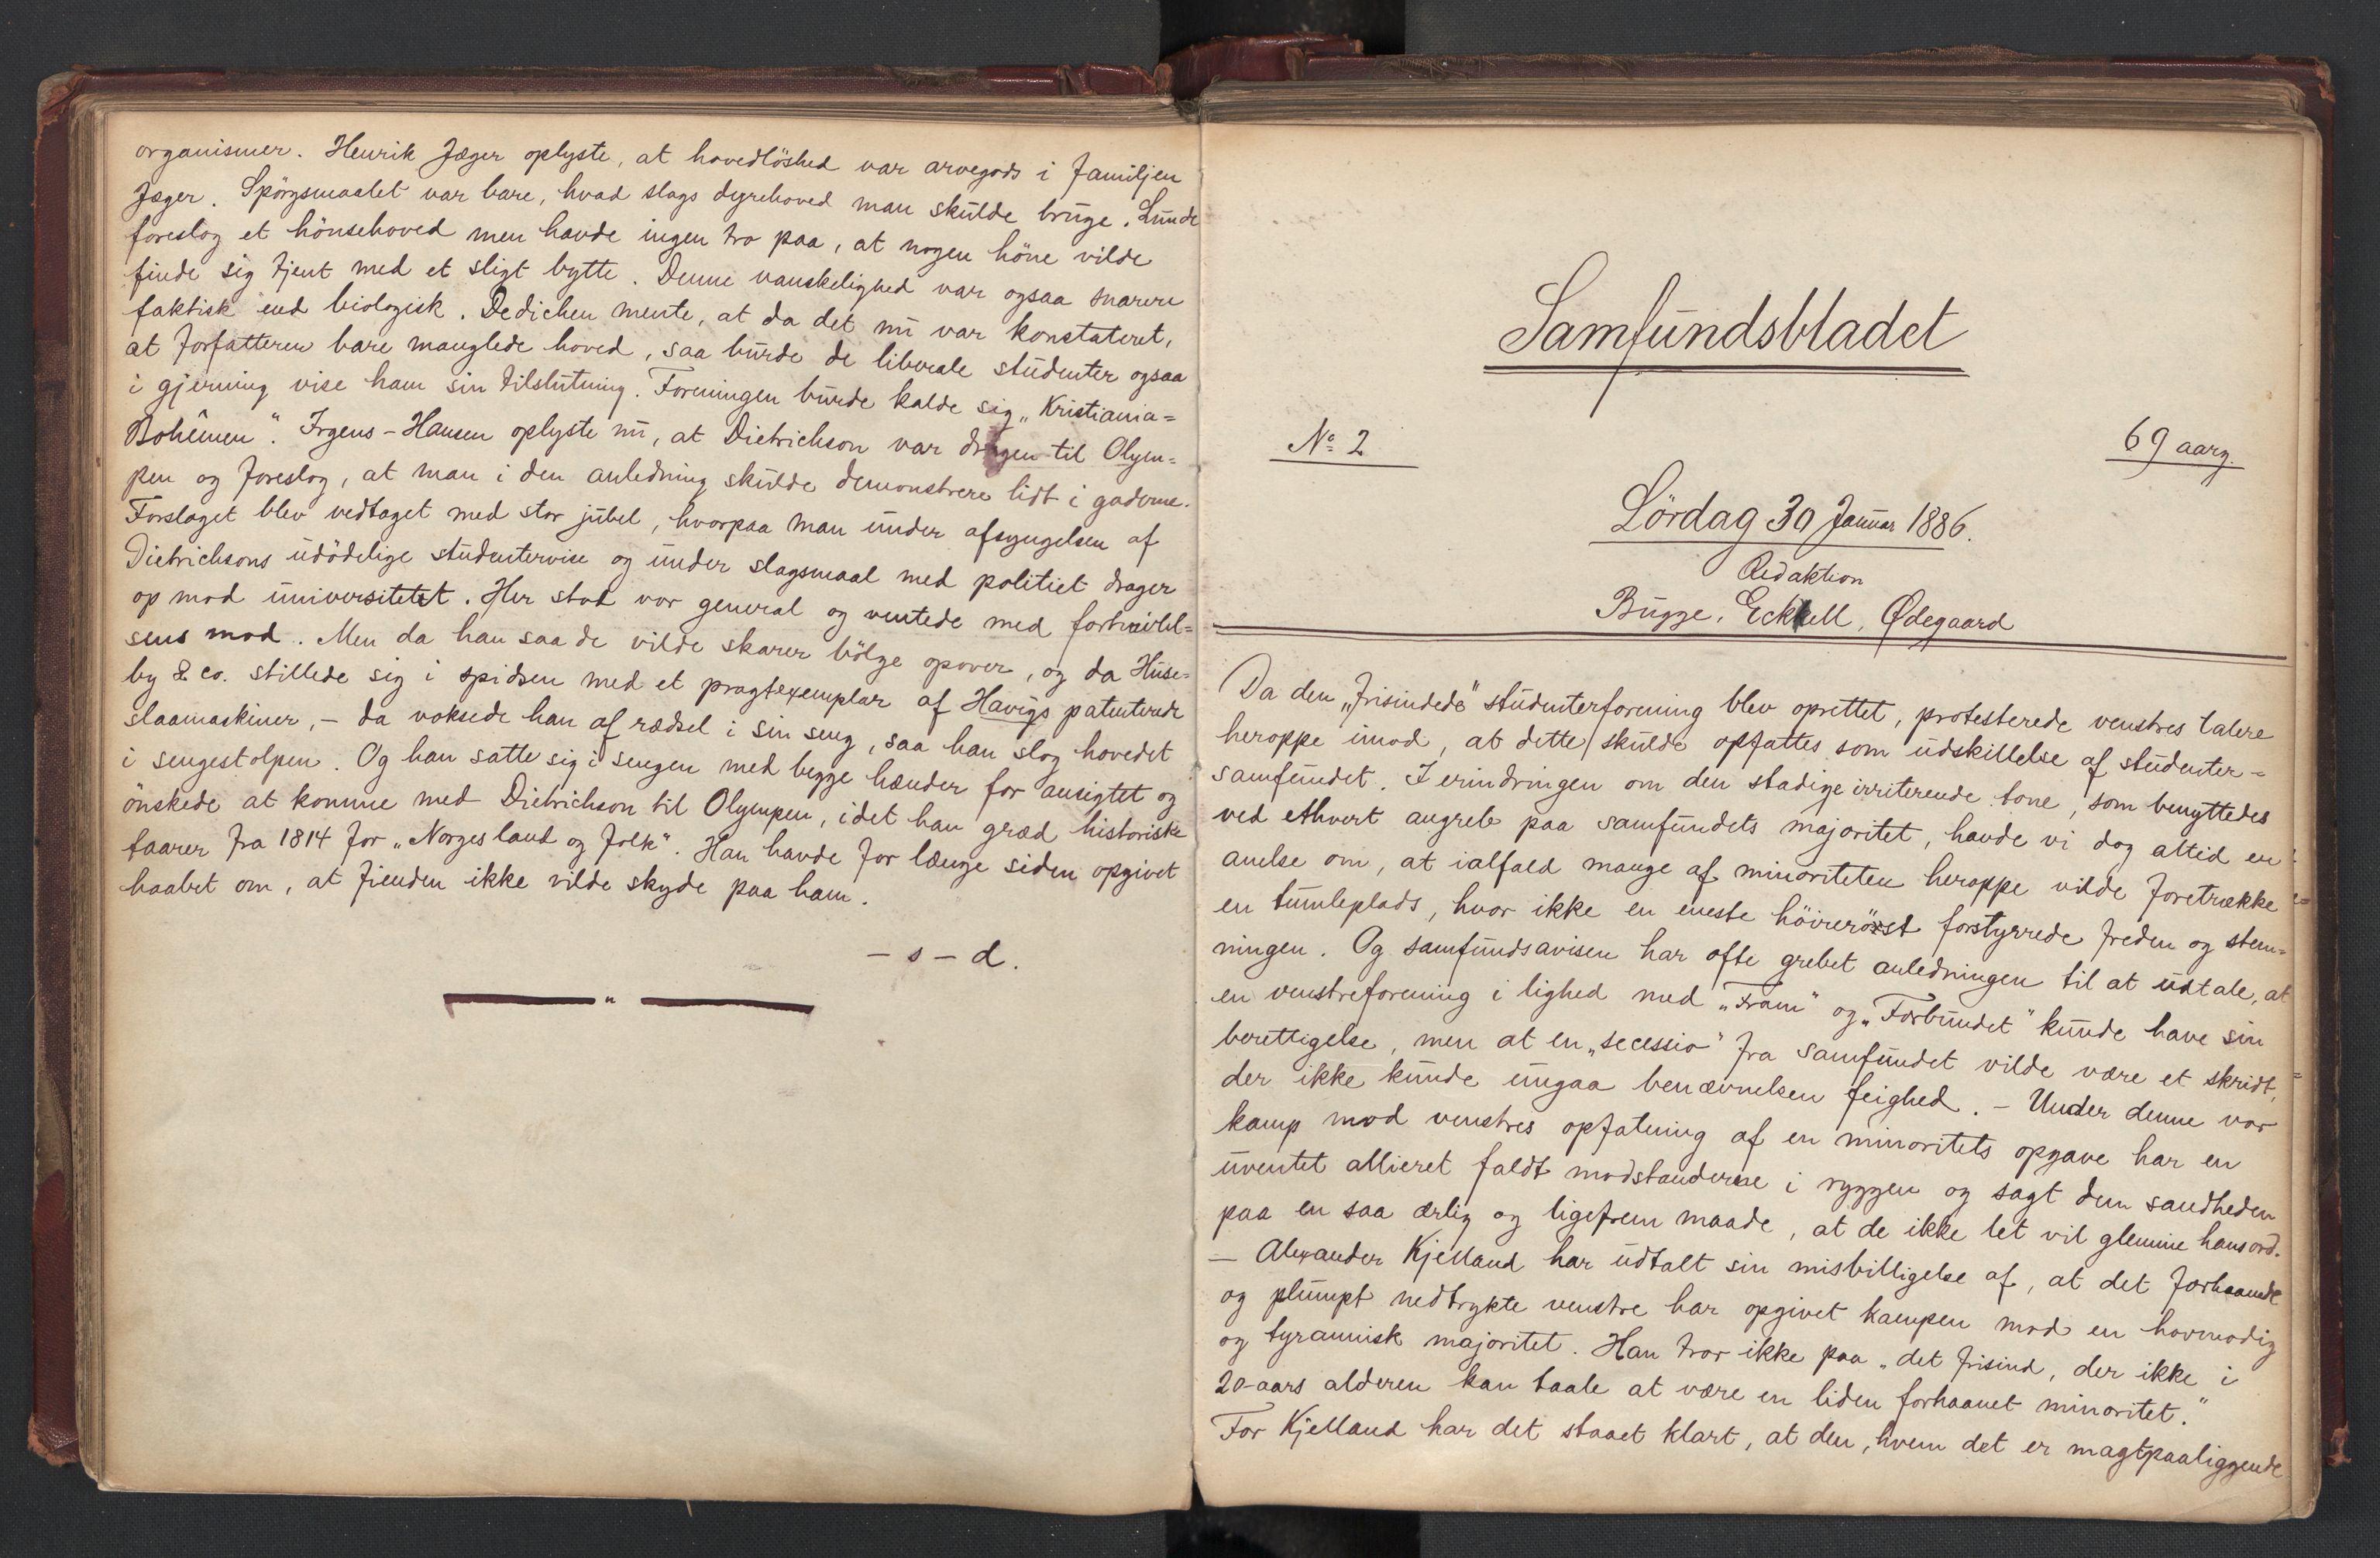 organismer. Henrik Jæger oplyste, at hovedlöshed var arvegods i familjen
Jæger. Spörgsmaalet var bare, hvad slags dyrehoved man skulde bruge. Lunde
foreslog et hönsehoved men havde ingen tro paa, at nogen höne vilde
finde sig tjent med et sligt bytte. Denne vanskelighed var ogsaa snarere
faktisk end biologisk. Dedichen mente, at da det nu var konstateret,
at forfatteren bare manglede hoved, saa burde de liberale studenter ogsaa
i gjerning vise ham sin tilslutning. Foreningen burde kalde sig „Kristiania=
Bohêmen“. Irgens-Hansen oplyste nu, at Dietrichson var dragen til Olym=
pen og foreslog, at man i den anledning skulde demonstrere lidt i gaderne.
Forslaget blev vedtaget med stor jubel, hvorpaa man under afsyngelsen af
Dietrichsons udödelige studentervise og under slagsmaal med politiet drager
op mod universitetet. Her stod vor general og ventede med fortvivlel=
sens mod. Men da han saa de vilde skarer bölge opover, og da Huse=
by & co. stillede sig i spidsen med et pragtexemplar af Havigs patenterede
slaamaskiner, – da voksede han af rædsel i sin seng, saa han slog hovedet
i sengestolpen. Og han satte sig i sengen med begge hænder for ansigtet og
önskede at komme med Dietrichson til Olympen, idet han græd historiske
taarer fra 1814 for „Norges land og folk“. Han havde for længe siden opgivet
haabet om, at fienden ikke vilde skyde paa ham.
– s – d.
Samfundsbladet
No 2
69 aarg.
Lördag 30 Januar 1886.
Redaktion
Bugge, Eckell, Ødegaard
Da den „frisindede“ studenterforening blev oprettet, protesterede venstres talere
heroppe imod, at dette skulde opfattes som udskillelse af studenter=
samfundet. I erindringen om den stadige irriterende tone, som benyttedes
ved ethvert angreb paa samfundets majoritet, havde vi dog altid en
anelse om, at ialfald mange af minoriteten heroppe vilde foretrække
en tumleplads, hvor ikke en eneste höireröst forstyrrede freden og stem=
ningen. Og samfundsavisen har ofte grebet anledningen til at udtale, at
en venstreforening i lighed med „Fram“ og „Forbundet“ kunde have sin
berettigelse, men at en „secessio“ fra samfundet vilde være et skridt,
der ikke kunde undgaa benævnelsen feighed. – Under denne vor
kamp mod venstres opfatning af en minoritets opgave har en
uventet allieret faldt modstanderne i ryggen og sagt dem sandheden
paa en saa ærlig og ligefrem maade, at de ikke let vil glemme hans ord.
– Alexander Kjelland har udtalt sin misbilligelse af, at det forhaanede
og plumpt nedtrykte venstre har opgivet kampen mod en hovmodig
og tyrannisk majoritet. Han tror ikke paa „det frisind, der ikke i
20-aars alderen kan taale at være en liden forhaanet minoritet.“
For Kjelland har det staaet klart, at den, hvem det er magtpaaliggende